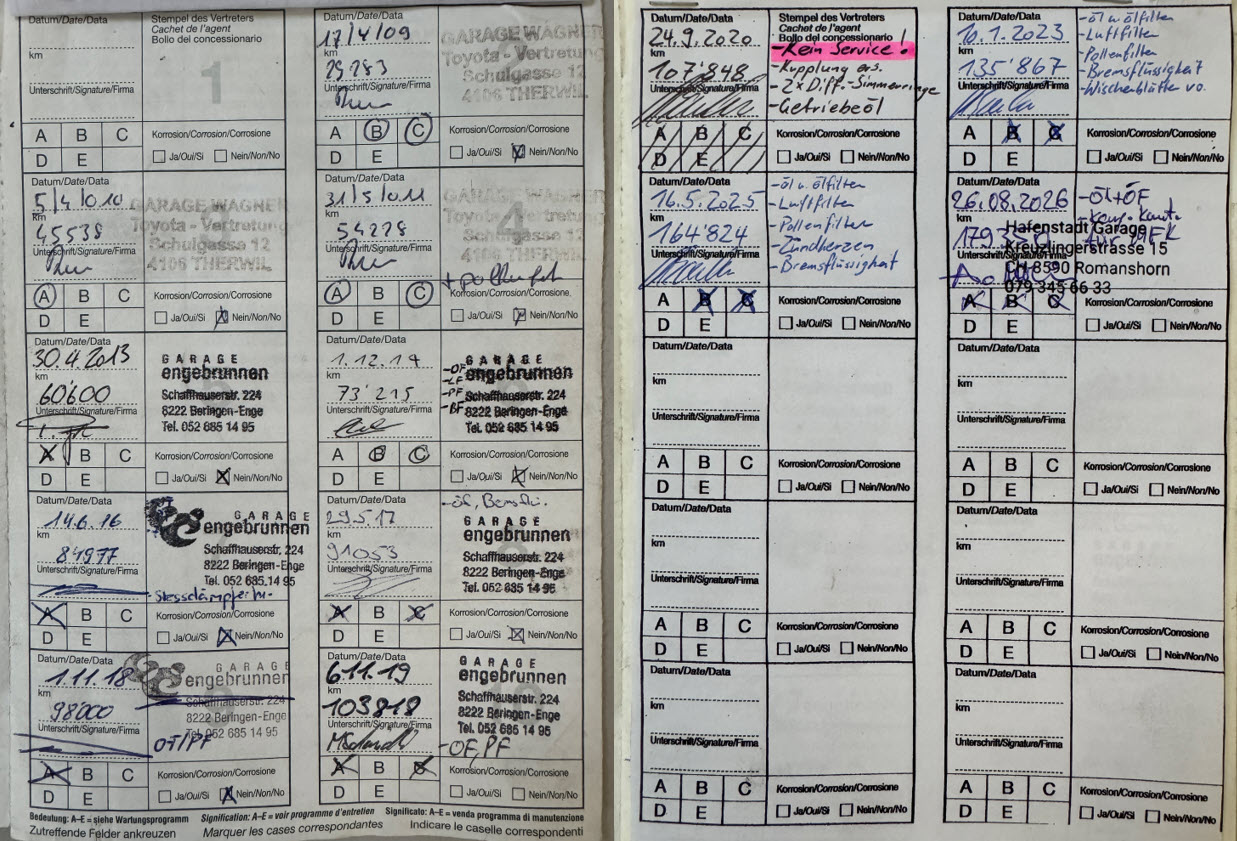 Datum/Date/Data
km
Unterschrift/Signature/Firma
1
Stempel des Vertreters
Cachet de l'agent
Bollo del concessionario
A B C
D E
Korrosion/Corrosion/Corrosione
Ja/Oui/Si Nein/Non/No
Datum/Date/Data
17/4/09
km
29283
Unterschrift/Signature/Firma
GARAGE WAGNER
Toyota - Vertretung
Schulgasse 12
4106 THERWIL
A B C
D E
Korrosion/Corrosion/Corrosione
Ja/Oui/Si Nein/Non/No
Datum/Date/Data
5/4/010
km
45538
Unterschrift/Signature/Firma
GARAGE WAGNER
Toyota - Vertretung
Schulgasse 12
4106 THERWIL
A B C
D E
Korrosion/Corrosion/Corrosione
Ja/Oui/Si Nein/Non/No
Datum/Date/Data
31/5/011
km
54228
Unterschrift/Signature/Firma
GARAGE WAGNER
Toyota - Vertretung
4
Schulgasse 12
4106 THERWIL
A B C
D E
Korrosion/Corrosion/Corrosione
Ja/Oui/Si Nein/Non/No
Datum/Date/Data
30.4.2013
km
60'600
Unterschrift/Signature/Firma
GARAGE
engebrunnen
Schaffhauserstr. 224
8222 Beringen-Enge
Tel. 052 685 14 95
A B C
D E
Korrosion/Corrosion/Corrosione
Ja/Oui/Si Nein/Non/No
Datum/Date/Data
1.12.14
km
73'215
Unterschrift/Signature/Firma
-OF
-LF
-PF
-BF
GARAGE
engebrunnen
Schaffhauserstr. 224
8222 Beringen-Enge
Tel. 052 685 14 95
A B C
D E
Korrosion/Corrosion/Corrosione
Ja/Oui/Si Nein/Non/No
Datum/Date/Data
14.6.16
km
84977
Unterschrift/Signature/Firma
GARAGE
engebrunnen
Schaffhauserstr. 224
8222 Beringen-Enge
Tel. 052 685 14 95
A B C
D E
Korrosion/Corrosion/Corrosione
Ja/Oui/Si Nein/Non/No
Datum/Date/Data
29.5.17
km
91053
Unterschrift/Signature/Firma
GARAGE
engebrunnen
Schaffhauserstr. 224
8222 Beringen-Enge
Tel. 052 685 14 95
A B C
D E
Korrosion/Corrosion/Corrosione
Ja/Oui/Si Nein/Non/No
Datum/Date/Data
1.11.18
km
98000
Unterschrift/Signature/Firma
GARAGE
engebrunnen
Schaffhauserstr. 224
8222 Beringen-Enge
Tel. 052 685 14 95
A B C
D E
Korrosion/Corrosion/Corrosione
Ja/Oui/Si Nein/Non/No
Datum/Date/Data
6.11.19
km
103818
Unterschrift/Signature/Firma
GARAGE
engebrunnen
Schaffhauserstr. 224
8222 Beringen-Enge
Tel. 052 685 14 95
-OF, PF
A B C
D E
Korrosion/Corrosion/Corrosione
Ja/Oui/Si Nein/Non/No
Bedeutung: A–E = siehe Wartungsprogramm Signification: A–E = voir programme d'entretien Significato: A–E = venda programma di manutenzione
Zutreffende Felder ankreuzen Marquer les cases correspondantes Indicare le caselle correspondenti
Datum/Date/Data
24.9.2020
km
107'848
Unterschrift/Signature/Firma
Stempel des Vertreters
Cachet de l'agent
Bollo del concessionario
-Kein Service!
-Kupplung ers.
-2x Diff.-Simmerringe
-Getriebeöl
A B C
D E
Korrosion/Corrosion/Corrosione
Ja/Oui/Si Nein/Non/No
Datum/Date/Data
10.1.2023
km
135'867
Unterschrift/Signature/Firma
-öl u. ölfilter
-Luftfilter
-Pollenfilter
-Bremsflüssigkeit
-Wischenblätter vo.
A B C
D E
Korrosion/Corrosion/Corrosione
Ja/Oui/Si Nein/Non/No
Datum/Date/Data
16.5.2025
km
164'824
Unterschrift/Signature/Firma
-öl u. ölfilter
-Luftfilter
-Pollenfilter
-Zündkerzen
-Bremsflüssigkeit
A B C
D E
Korrosion/Corrosion/Corrosione
Ja/Oui/Si Nein/Non/No
Datum/Date/Data
26.08.2026
km
Unterschrift/Signature/Firma
-Öl+ÖF
Hafenstadt Garage
Kreuzlingerstrasse 15
CH-8590 Romanshorn
079 345 66 33
A B C
D E
Korrosion/Corrosion/Corrosione
Ja/Oui/Si Nein/Non/No
Datum/Date/Data
km
Unterschrift/Signature/Firma
A B C
D E
Korrosion/Corrosion/Corrosione
Ja/Oui/Si Nein/Non/No
Datum/Date/Data
km
Unterschrift/Signature/Firma
A B C
D E
Korrosion/Corrosion/Corrosione
Ja/Oui/Si Nein/Non/No
Datum/Date/Data
km
Unterschrift/Signature/Firma
A B C
D E
Korrosion/Corrosion/Corrosione
Ja/Oui/Si Nein/Non/No
Datum/Date/Data
km
Unterschrift/Signature/Firma
A B C
D E
Korrosion/Corrosion/Corrosione
Ja/Oui/Si Nein/Non/No
Datum/Date/Data
km
Unterschrift/Signature/Firma
A B C
D E
Korrosion/Corrosion/Corrosione
Ja/Oui/Si Nein/Non/No
Datum/Date/Data
km
Unterschrift/Signature/Firma
A B C
D E
Korrosion/Corrosion/Corrosione
Ja/Oui/Si Nein/Non/No